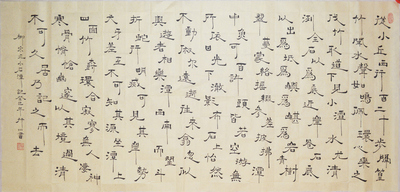 從小丘西行百二十步隔篁
竹聞水聲如鳴佩環心樂之
伐竹取道下見小潭水尤清
冽全石以為底近岸卷石底
以出為坻為嶼為嵁為巖青樹
翠蔓蒙絡搖綴參差披拂潭
中魚可百許頭皆若空游無
所依日光下澈影布石上怡然
不動俶爾遠逝往來翕忽似
與遊者相樂潭西南而望斗
折蛇行明滅可見其岸勢
犬牙差互不可知其源坐潭上
四面竹樹環合寂寥無人凄神
寒骨悄愴幽邃以其境過清
不可久居乃記之而去
柳宗元小石潭記